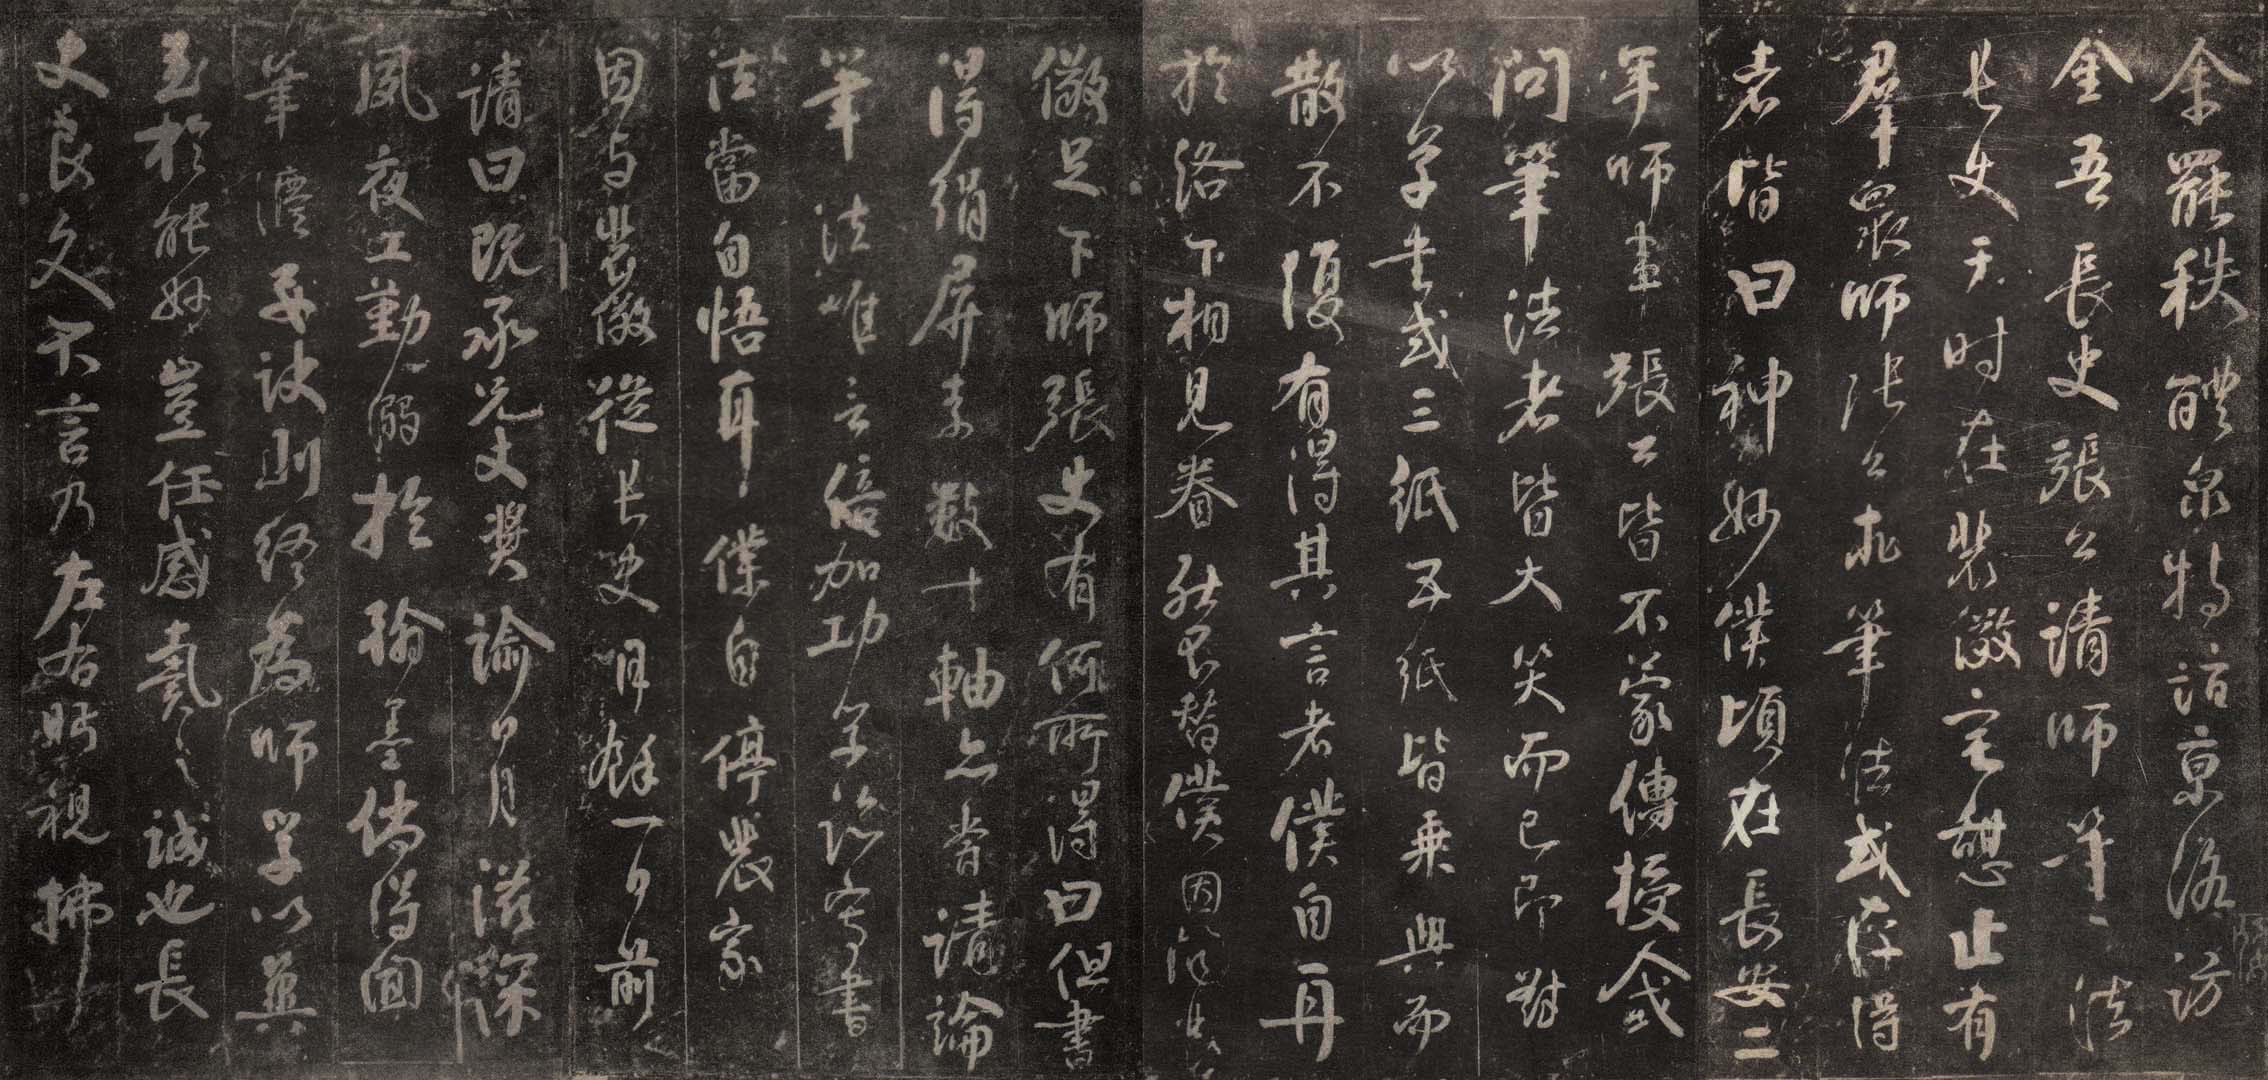 余罷秩醴泉特詣京洛訪
金吾長史張公請師筆法
長史于時在裴儆宅憩止有
羣衆師張公求筆法或存得
者皆曰神妙僕頃在長安二
年師事張公皆不蒙傳授人或
問筆法者皆大笑而已即對
以草書或三紙五紙皆乘興而
散不復有得其言者僕自再
於洛下相見眷然不替僕因
儆足下師張史有何所得曰但書
得絹屏素數十軸亦嘗請論
筆法唯言倍加功學臨寫書
法當自悟耳僕自停裴家
因與裴儆從長史月餘一日前
請曰既承兄丈獎諭日月滋深
夙夜工勤溺於翰墨倘得聞
筆法要訣則終為師學以冀
至於能妙豈任感戴之誠也長
史良久不言乃左右眄視拂